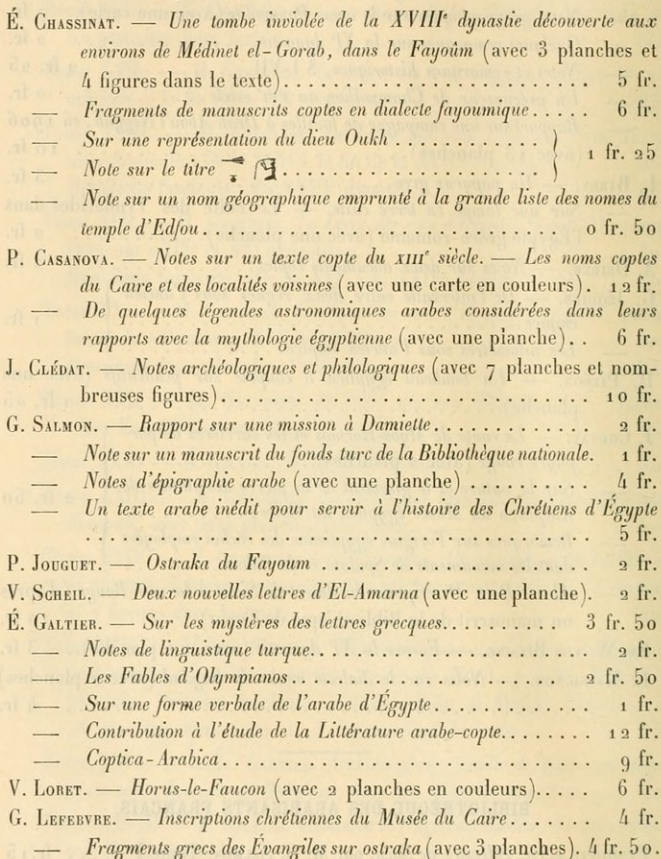 É. Chassinat. — Une tombe inviolée de la XVIIIᵉ dynastie découverte aux
environs de Médinet el-Gorab, dans le Fayoûm (avec 3 planches et
4 figures dans le texte)............................ 5 fr.
— Fragments de manuscrits coptes en dialecte fayoumique..... 6 fr.
— Sur une représentation du dieu Oukh ............
— Note sur le titre .................... } 1 fr. 25
— Note sur un nom géographique emprunté à la grande liste des nomes du
temple d'Edfou............................ 0 fr. 50
P. Casanova. — Notes sur un texte copte du XIIIᵉ siècle. — Les noms coptes
du Caire et des localités voisines (avec une carte en couleurs). 12 fr.
— De quelques légendes astronomiques arabes considérées dans leurs
rapports avec la mythologie égyptienne (avec une planche).. 6 fr.
J. Clédat. — Notes archéologiques et philologiques (avec 7 planches et nom-
breuses figures)............................ 10 fr.
G. Salmon. — Rapport sur une mission à Damiette............ 2 fr.
— Note sur un manuscrit du fonds turc de la Bibliothèque nationale. 1 fr.
— Notes d'épigraphie arabe (avec une planche) .......... 4 fr.
— Un texte arabe inédit pour servir à l'histoire des Chrétiens d'Égypte
........................................ 5 fr.
P. Jouguet. — Ostraka du Fayoum .................. 2 fr.
V. Scheil. — Deux nouvelles lettres d'El-Amarna (avec une planche). 2 fr.
É. Galtier. — Sur les mystères des lettres grecques.......... 3 fr. 50
— Notes de linguistique turque..................... 2 fr.
— Les Fables d'Olympianos...................... 2 fr. 50
— Sur une forme verbale de l'arabe d'Égypte............ 1 fr.
— Contribution à l'étude de la Littérature arabe-copte........ 12 fr.
— Coptica-Arabica............................ 9 fr.
V. Loret. — Horus-le-Faucon (avec 2 planches en couleurs)..... 6 fr.
G. Lefebvre. — Inscriptions chrétiennes du Musée du Caire....... 4 fr.
— Fragments grecs des Évangiles sur ostraka (avec 3 planches). 4 fr. 50.